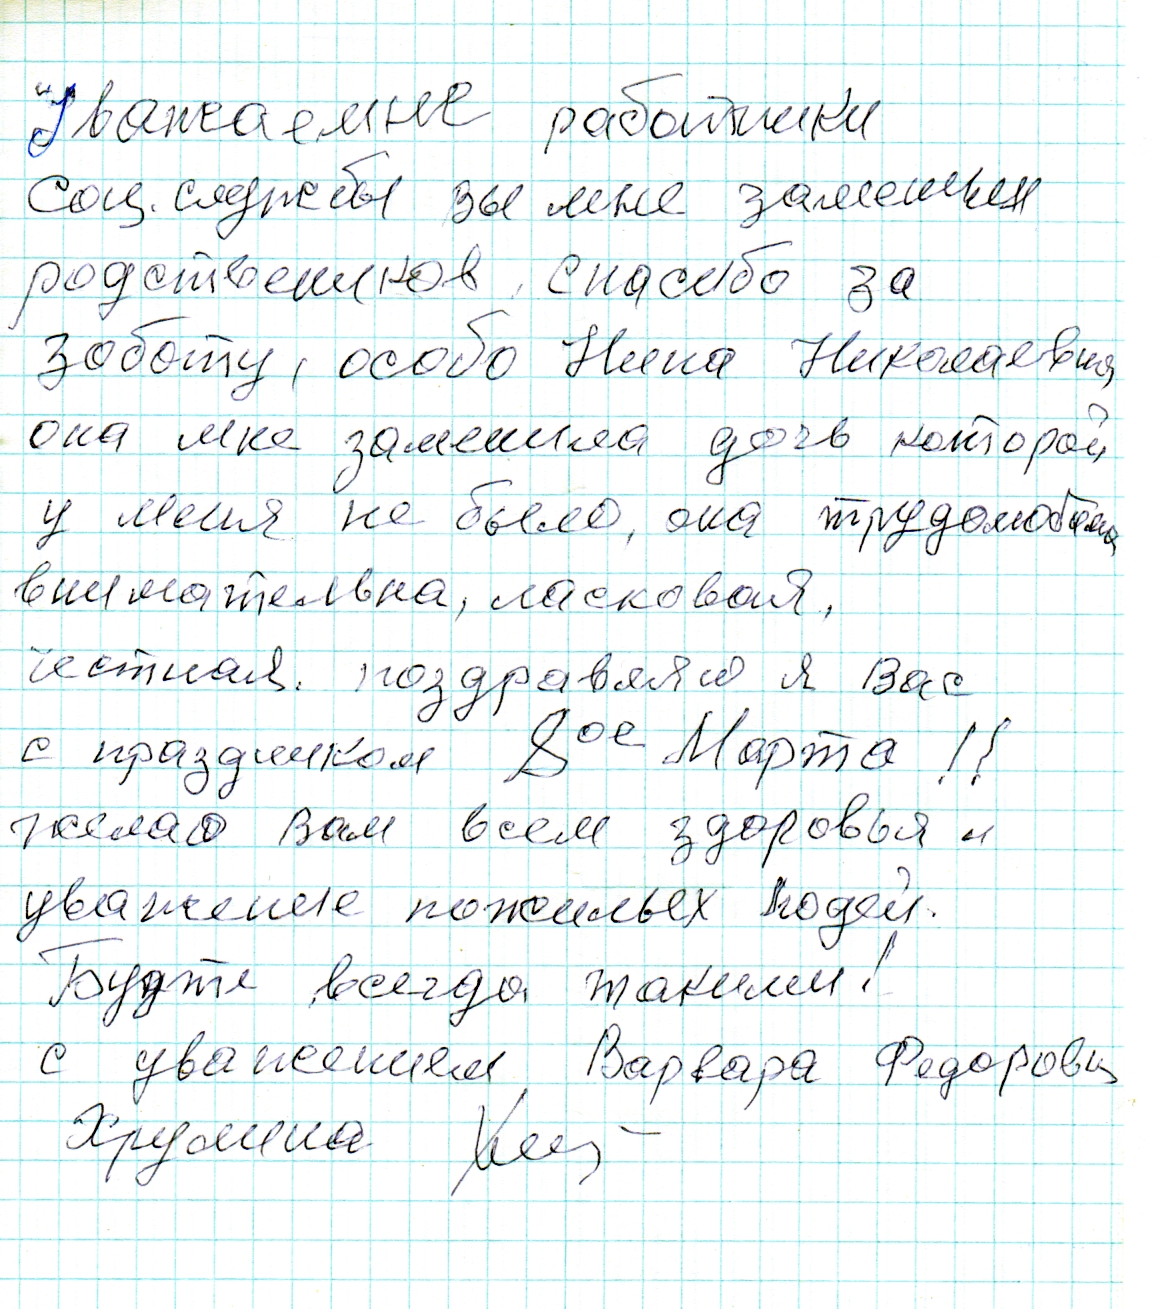 "Уважаемые работники
Соц. службы вы мне заменили
родствеников, спасибо за
зоботу, особо Нина Николаевна,
она мне заменила дочь которой
у меня не было, она трудолюбива,
внимательна, ласковая,
честная. поздравляю я Вас
с праздником 8ое Марта!!
желаю Вам всем здоровья и
уважение пожилых людей.
Будте всегда такими!
с уважением Варвара Федоровна